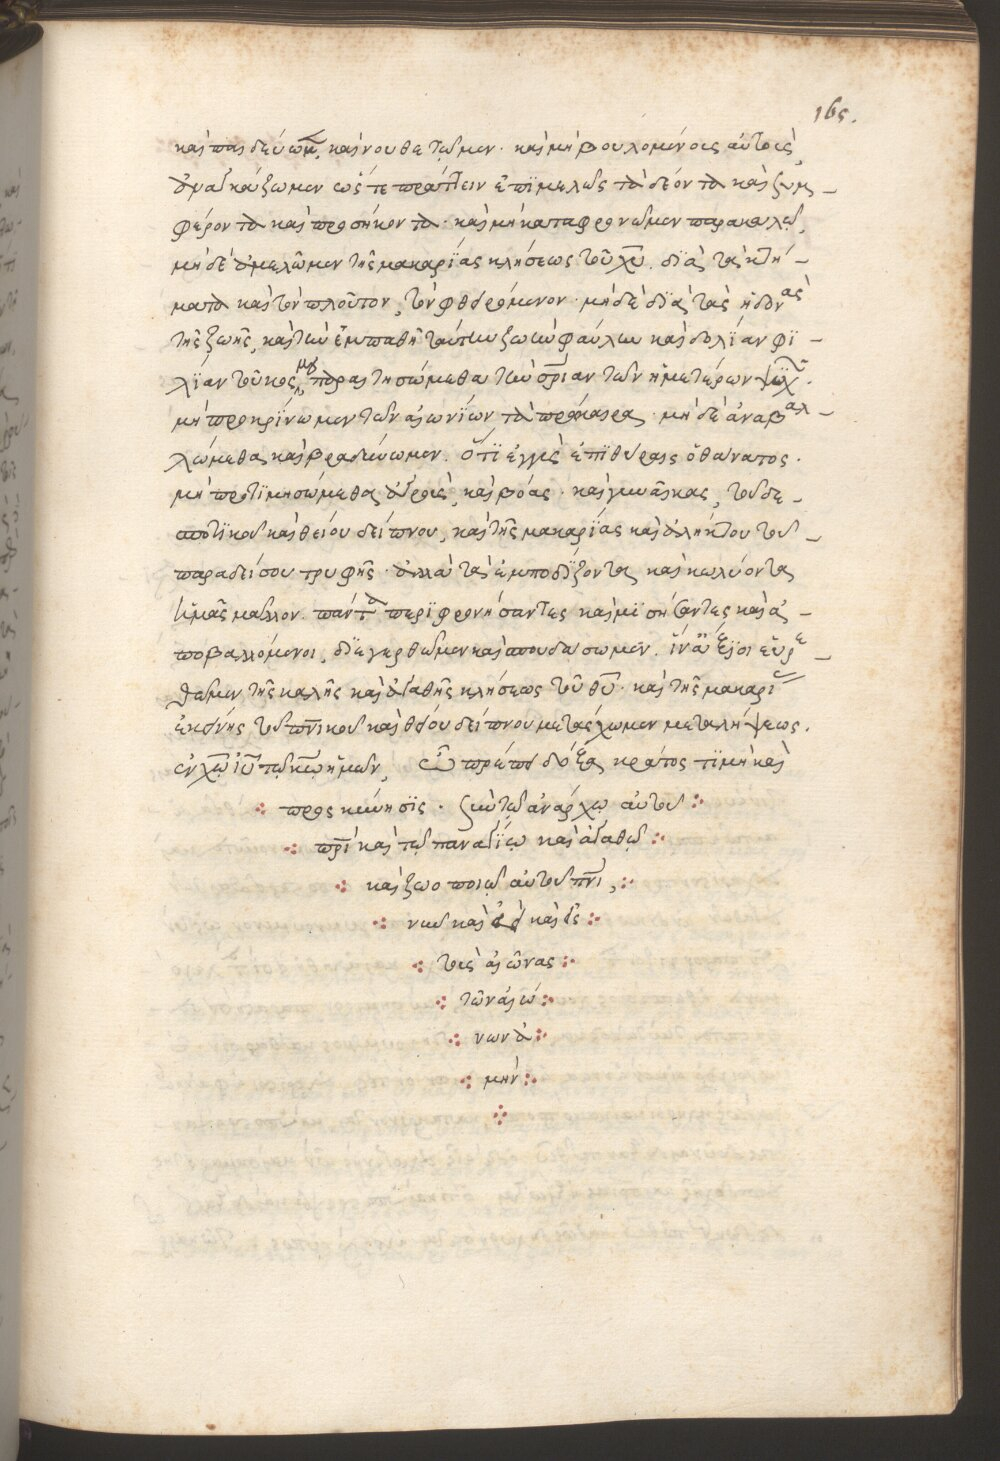 165.
καὶ παιδεύωμεν, καὶ νουθετῶμεν· καὶ μὴ βουλομένοις αὐτοῖς,
ἀναγκάζωμεν ὥστε πράττειν ἐπϊμελῶς τὰ δέοντα καὶ ξυμ-
φέροντα καὶ προσήκοντα· καὶ μὴ καταφρονῶμεν παρακαλῶ,
μηδὲ ἀμελῶμεν τῆς μακαρίας κλήσεως τοῦ χυ. δϊὰ τὰ κτή-
ματα καὶ τὸν πλοῦτον, τὸν φθειρόμενον· μηδὲ δϊὰ τὰς ἡδονὰς
τῆς ζωῆς, καὶ τὴν ἐμπαθῆ ταύτην ζωὴν φαύλην καὶ δολίαν φϊ-
λίαν τοῦ κόσμου, παραστησώμεθα τὴν σριαν τῶν ἡμετέρων ψυχῶν.
μὴ προκρίνωμεν τῶν αἰωνΐων τὰ πρόσκαιρα· μηδὲ ἀναβαλ-
λώμεθα καὶ βραδύνωμεν. ὅτϊ ἐγγὺς ἐπϊ θύραις ὁ θάνατος.
μὴ προτϊμησώμεθα ἀγροὺς, καὶ βόας· καὶ γυναῖκας, τοῦ δε-
σποτϊκοῦ καὶ θείου δείπνου, καὶ τῆς μακαρΐας καὶ ἀλήκτου τοῦ
παραδείσου τρυφῆς· ἀλλὰ τὰ ἐμποδΐζοντα καὶ κωλύοντα
ἡμᾶς μᾶλλον. πάντα περϊφρονήσαντες καὶ μϊσήσαντες καὶ ἀ-
ποβαλλόμενοι, δϊεγερθῶμεν καὶ σπουδάσωμεν. ἵνα ἄξϊοι εὑρε-
θῶμεν τῆς καλῆς καὶ ἀγαθῆς κλήσεως τοῦ θυ· καὶ τῆς μακαρί
ἐκείνης τοῦ πνικοῦ καὶ θείου δείπνου μετάσχωμεν μεταλήψεως.
ἐν χω ιυ τῶ κω ἡμῶν, ὧ πρέπει δόξα κράτος τϊμὴ καὶ
προσκύνησϊς. σὺν τῶ ἀνάρχω αὐτοῦ
πρι καὶ τῶ παναγΐω καὶ ἀγαθῶ
καὶ ζωοποιῶ αὐτοῦ πνι,
νῦν καὶ ἀεὶ καὶ εἰς
τοὺς αἰῶνας
τῶν αἰώ
νων ἀ
μήν